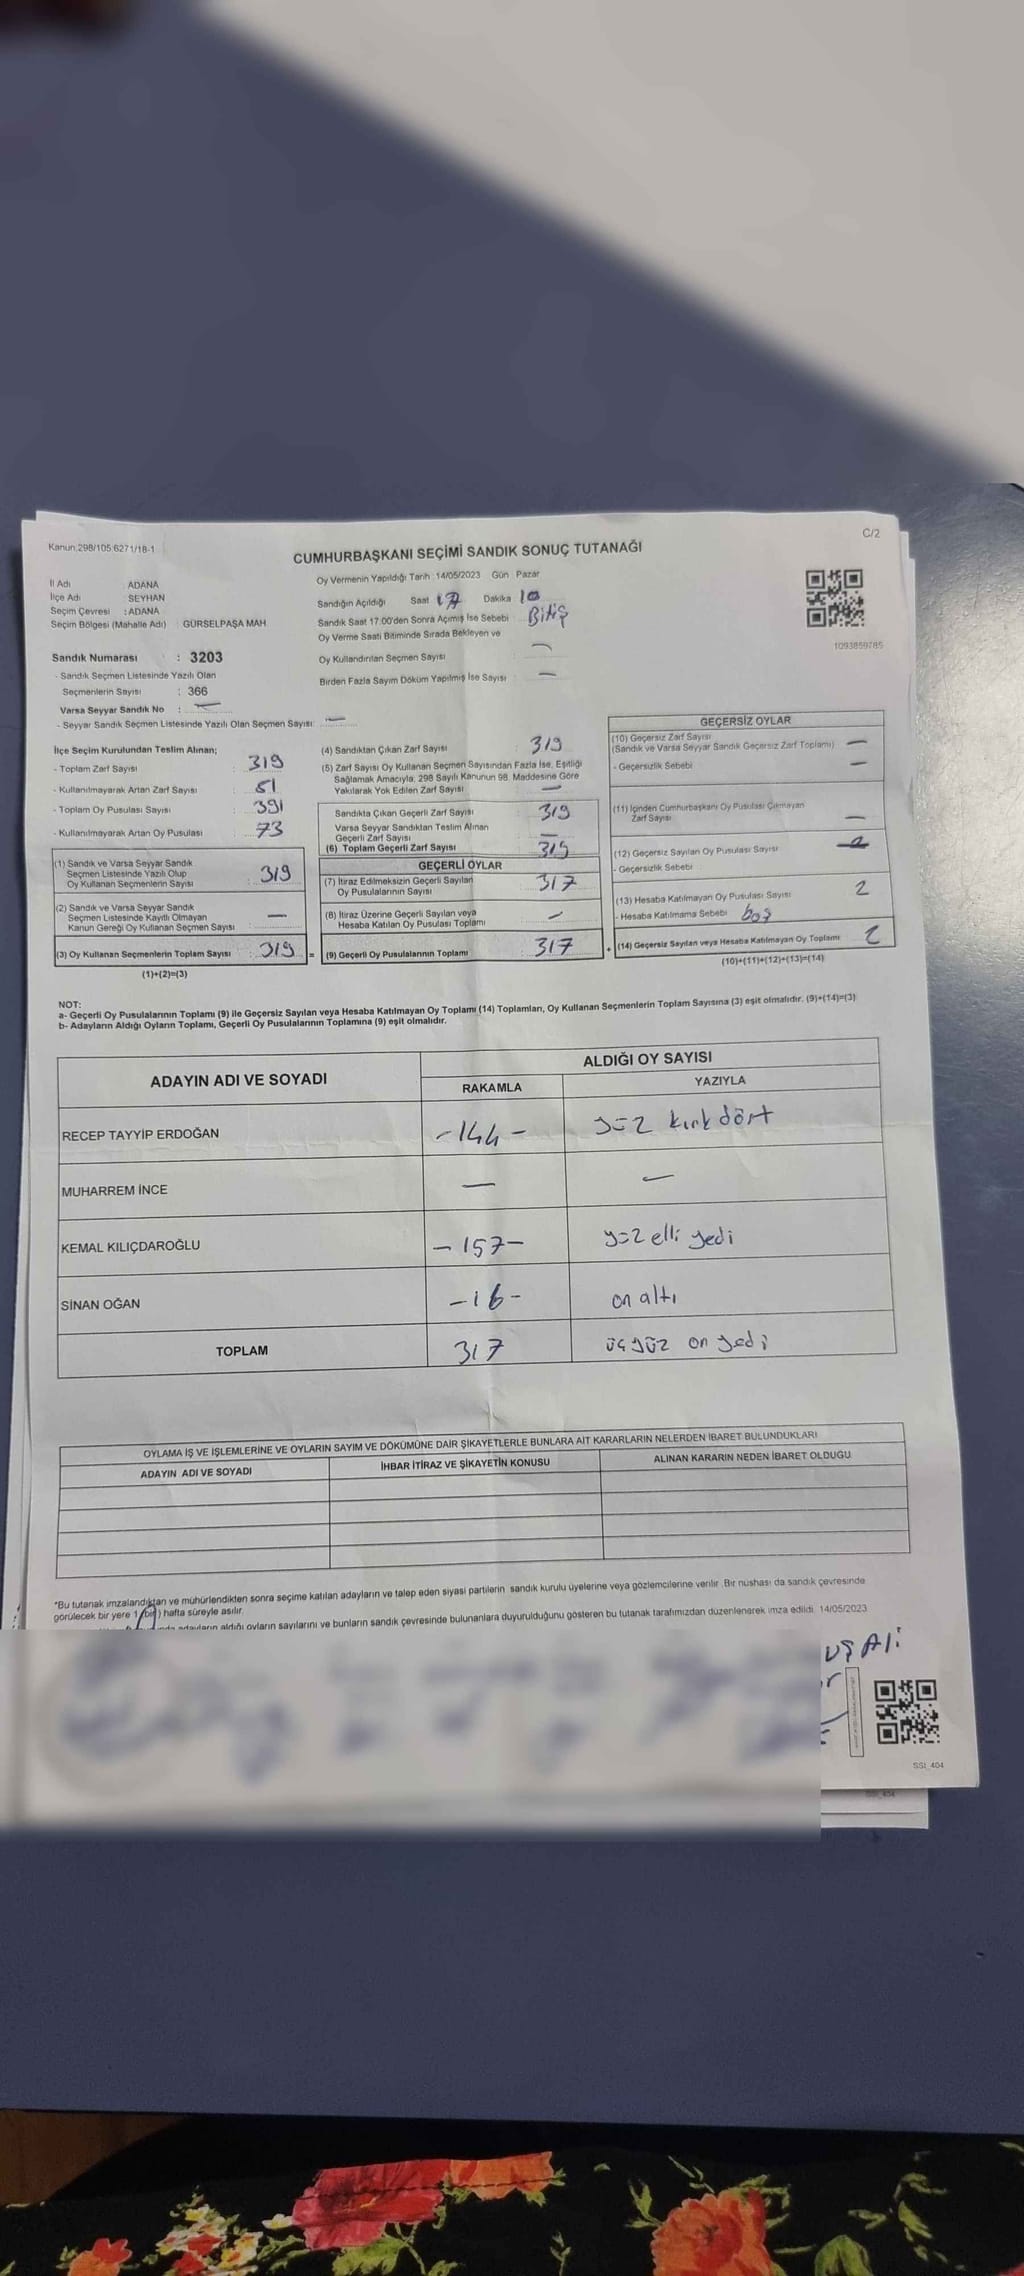 Kanun,298/105 6271/18-1
C/2
CUMHURBAŞKANI SEÇİMİ SANDIK SONUÇ TUTANAĞI
İl Adı ADANA
İlçe Adı SEYHAN
Seçim Çevresi : ADANA
Seçim Bölgesi (Mahalle Adı) : GÜRSELPAŞA MAH
Oy Vermenin Yapıldığı Tarih : 14/05/2023 Gün Pazar
Sandığın Açıldığı Saat 17 Dakika 10
Sandık Saat 17.00'den Sonra Açımış İse Sebebi : Bitiş
Oy Verme Saati Bitiminde Sırada Bekleyen ve
Oy Kullandırılan Seçmen Sayısı —
Birden Fazla Sayım Döküm Yapılmış İse Sayısı : —
1093859785
Sandık Numarası : 3203
- Sandık Seçmen Listesinde Yazılı Olan
Seçmenlerin Sayısı : 366
Varsa Seyyar Sandık No : —
- Seyyar Sandık Seçmen Listesinde Yazılı Olan Seçmen Sayısı: —
İlçe Seçim Kurulundan Teslim Alınan;
- Toplam Zarf Sayısı : 319
- Kullanılmayarak Artan Zarf Sayısı : 51
- Toplam Oy Pusulası Sayısı : 391
- Kullanılmayarak Artan Oy Pusulası : 73
(1) Sandık ve Varsa Seyyar Sandık
Seçmen Listesinde Yazılı Olup
Oy Kullanan Seçmenlerin Sayısı : 319
(2) Sandık ve Varsa Seyyar Sandık
Seçmen Listesinde Kayıtlı Olmayan
Kanun Gereği Oy Kullanan Seçmen Sayısı : —
(3) Oy Kullanan Seçmenlerin Toplam Sayısı : 319 =
(1)+(2)=(3)
(4) Sandıktan Çıkan Zarf Sayısı : 319
(5) Zarf Sayısı Oy Kullanan Seçmen Sayısından Fazla İse, Eşitliği
Sağlamak Amacıyla, 298 Sayılı Kanunun 98. Maddesine Göre
Yakılarak Yok Edilen Zarf Sayısı : —
Sandıkta Çıkan Geçerli Zarf Sayısı : 319
Varsa Seyyar Sandıktan Teslim Alınan
Geçerli Zarf Sayısı : —
(6) Toplam Geçerli Zarf Sayısı : 319
GEÇERLİ OYLAR
(7) İtiraz Edilmeksizin Geçerli Sayılan
Oy Pusulalarının Sayısı : 317
(8) İtiraz Üzerine Geçerli Sayılan veya
Hesaba Katılan Oy Pusulası Toplamı : —
(9) Geçerli Oy Pusulalarının Toplamı : 317 +
GEÇERSİZ OYLAR
(10) Geçersiz Zarf Sayısı
(Sandık ve Varsa Seyyar Sandık Geçersiz Zarf Toplamı) —
- Geçersizlik Sebebi —
(11) İçinden Cumhurbaşkanı Oy Pusulası Çıkmayan
Zarf Sayısı —
(12) Geçersiz Sayılan Oy Pusulası Sayısı
- Geçersizlik Sebebi
(13) Hesaba Katılmayan Oy Pusulası Sayısı 2
- Hesaba Katılmama Sebebi boş
(14) Geçersiz Sayılan veya Hesaba Katılmayan Oy Toplamı 2
(10)+(11)+(12)+(13)=(14)
NOT:
a- Geçerli Oy Pusulalarının Toplamı (9) ile Geçersiz Sayılan veya Hesaba Katılmayan Oy Toplamı (14) Toplamları, Oy Kullanan Seçmenlerin Toplam Sayısına (3) eşit olmalıdır. (9)+(14)=(3)
b- Adayların Aldığı Oyların Toplamı, Geçerli Oy Pusulalarının Toplamına (9) eşit olmalıdır.
ADAYIN ADI VE SOYADI ALDIĞI OY SAYISI
RAKAMLA YAZIYLA
RECEP TAYYİP ERDOĞAN -144- yüz kırk dört
MUHARREM İNCE — —
KEMAL KILIÇDAROĞLU -157- yüz elli yedi
SİNAN OĞAN -16- on altı
TOPLAM 317 üçyüz on yedi
OYLAMA İŞ VE İŞLEMLERİNE VE OYLARIN SAYIM VE DÖKÜMÜNE DAİR ŞİKAYETLERLE BUNLARA AİT KARARLARIN NELERDEN İBARET BULUNDUKLARI
ADAYIN ADI VE SOYADI İHBAR İTİRAZ VE ŞİKAYETİN KONUSU ALINAN KARARIN NEDEN İBARET OLDUĞU
*Bu tutanak imzalandıktan ve mühürlendikten sonra seçime katılan adayların ve talep eden siyasi partilerin sandık kurulu üyelerine veya gözlemcilerine verilir. Bir nüshası da sandık çevresinde
görülecek bir yere 1 (bir) hafta süreyle asılır.
adayların aldığı oyların sayılarını ve bunların sandık çevresinde bulunanlara duyurulduğunu gösteren bu tutanak tarafımızdan düzenlenerek imza edildi. 14/05/2023
Ali
SSt_404